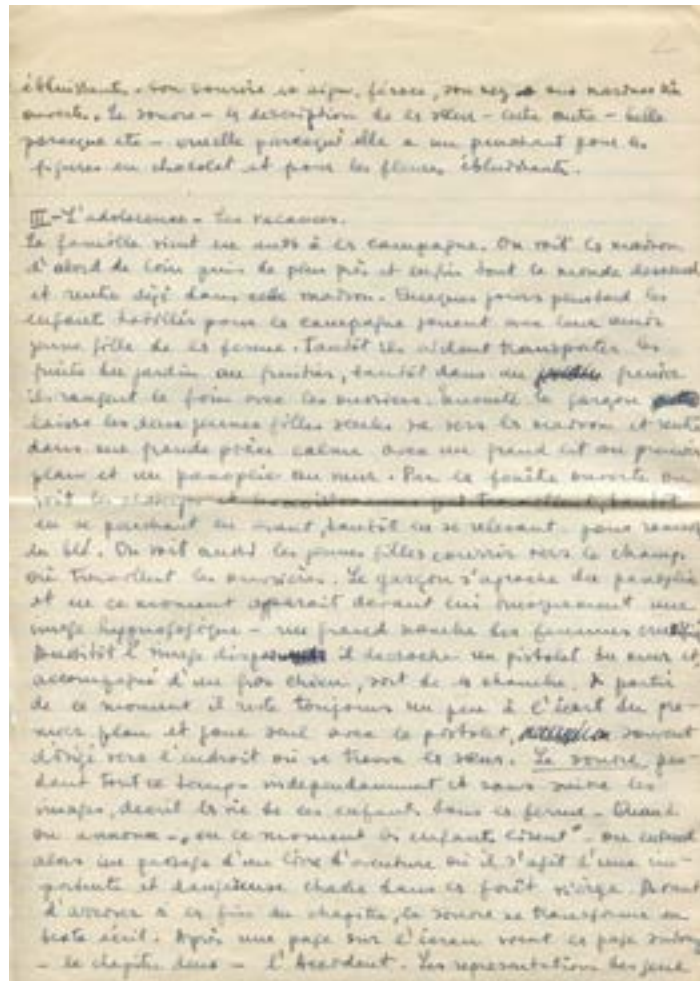 2
ébluissante. Son sourire si aigu, féroce, son nez aux narines
ouverte. Le sonore - la description de la sœur - cette autre - belle
parceque etc - cruelle parcequ'elle a un penchant pour les
figures en chocolat et pour les fleures ébluissante.
III - L'adolescence - Les vacances.
La famille vient en auto à la campagne. On voit la maison
d'abord de loin puis de plus près et enfin tout le monde descend
et rentre déjà dans cette maison. Quelques jours plustard les
enfant habillés pour la campagne jouent avec leur amie
jeune fille de la ferme. Tantôt ils aident transporter les
fruits du jardin au fruitier, tantôt dans un grenier
ils rangent le foin avec les ouvriers. Ensuite le garçon
laisse les deux jeunes filles seules va vers la maison et rentre
dans une grande pièce calme avec un grand lit au premier
plan et un panoplie au mur. Par la fenêtre ouverte on
voit les champs et travaillent, tantôt
en se penchant en avant, tantôt en se relevant pour
du blé. On voit aussi les jeunes filles courrir vers le champ
où travaillent les ouvrières. Le garçon s'aproche du panoplie
et en ce moment apparait devant lui une
image hypnagogique - un grand des femmes
Aussitôt l'image il decroche un pistolet du mur et
accompagné d'un gros chien, sort de la chambre. A partir
de ce moment il reste toujours un peu à l'écart du pre-
mier plan et joue seul avec le pistolet, souvent
dirigé vers l'endroit où se trouve la sœur. Le sonore, pen-
dant tout ce temps independamment et sans suivre les
images, decrit la vie de ces enfants dans la ferme. Quand
on annonce "en ce moment les enfants lisent" on entend
alors un passage d'un livre d'aventure où il s'agit d'une im-
portante et dangereuse chasse dans la forêt vierge. Avant
d'arriver à la fin du chapitre, le sonore se transforme en
texte écrit. Après une page sur l'écran vient la page
- le chapitre deux - l'Accident. Les representations des jeux